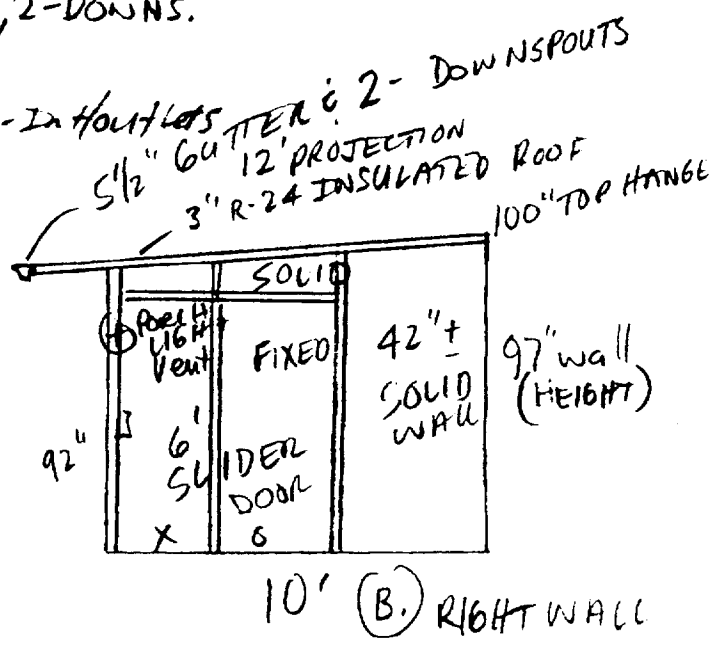 , 2-DOWNS.
5 1/2" GUTTER & 2- DOWNSPOUTS
12' PROJECTION
3" R-24 INSULATED ROOF
100" TOP HANGE
SOLID
PORCH
LIGHT
Vent
FIXED
42" ±
SOLID
WALL
97" wall
(HEIGHT)
92"
6'
SLIDER
DOOR
X
O
10' (B.) RIGHT WALL